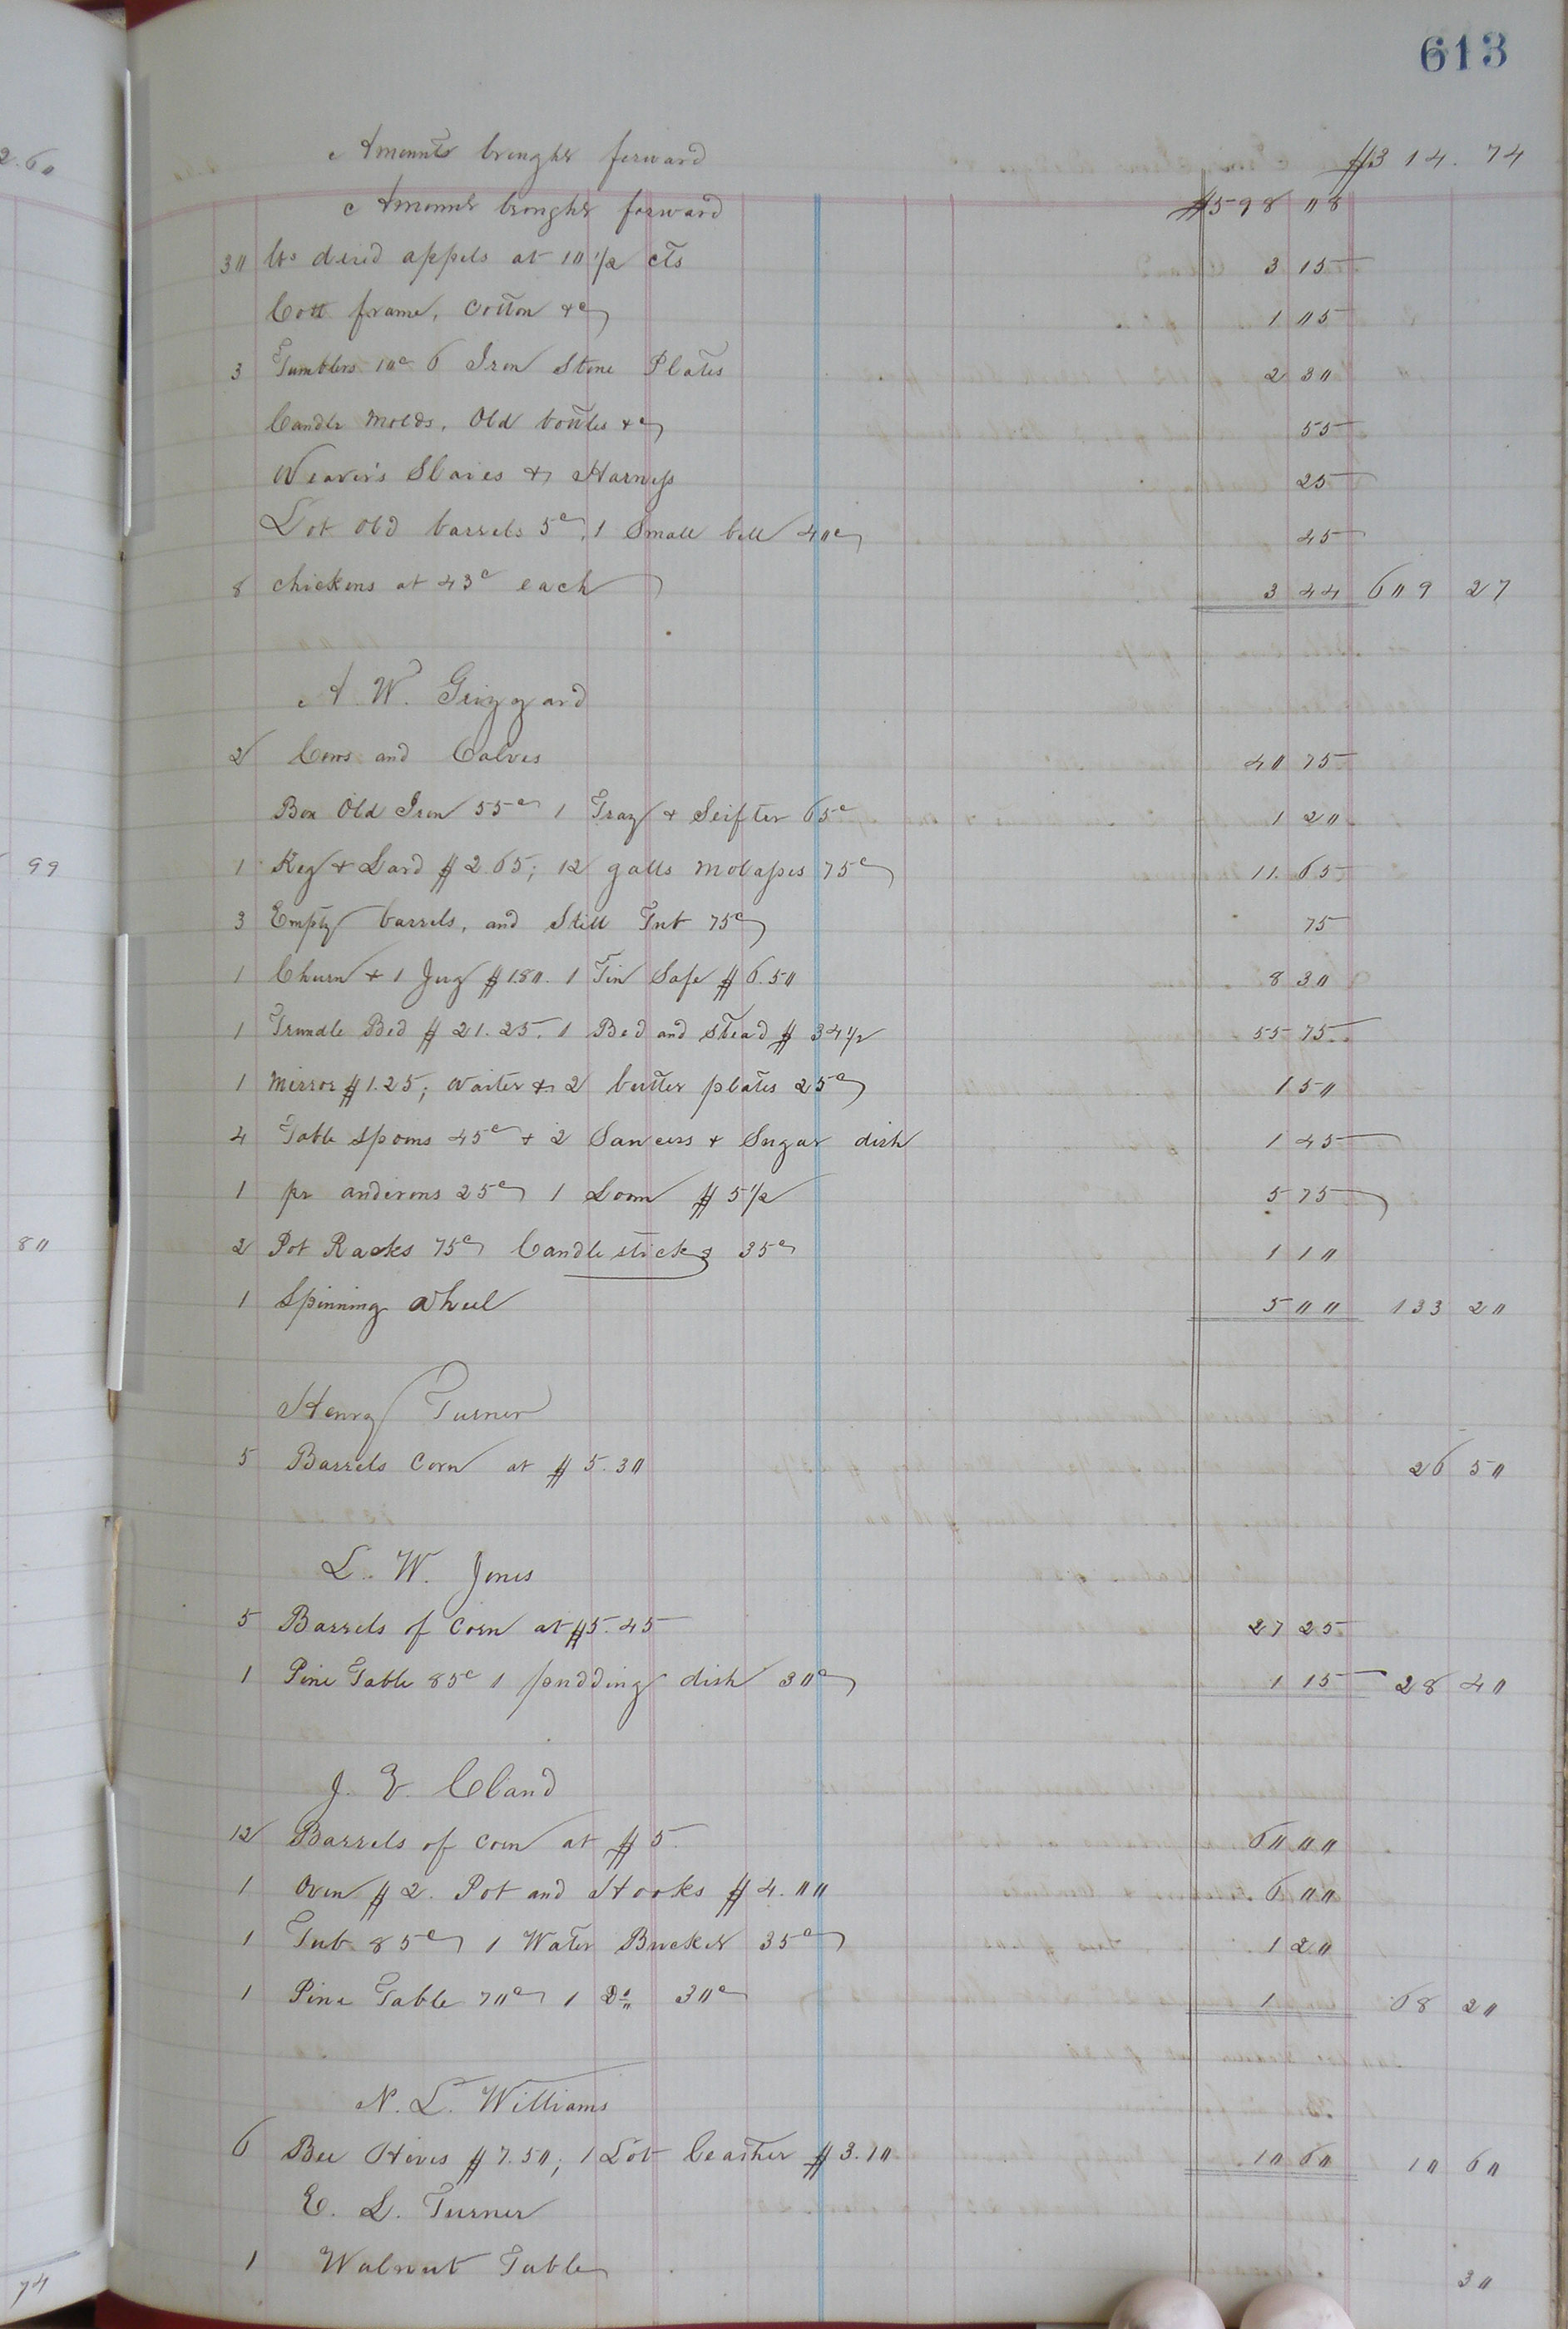 613
2.60
Amounts brought forward $314.74
Amounts brought forward $598 08
30 lbs dried appels at 10 1/2 cts 3 15
Cott frame, Cotton &c 1 05
3 Tumblers 10c 6 Iron Stone Plates 2 30
Candle Molds, Old bottles &c 55
Weaver's Slaies & Harness 25
Lot old barrels 5c, 1 Small bell 40c 45
8 chickens at 43c each 3 44 609 27
A. W. Grizzard
2 Cows and Calves 40 75
Box Old Iron 55c 1 Tray & Seifter 65c 1 20
99
1 Keg & Lard $2.65; 12 galls Molasses 75c 11.65
3 Empty barrels, and Still Tub 75c 75
1 Churn & 1 Jug $1.80. 1 Tin Safe $6.50 8 30
1 Trundle Bed $21.25. 1 Bed and Stead $34 1/2 55 75
1 Mirror $1.25; Waiter & 2 butter plates 25c 1 50
4 Table Spoons 45c & 2 Saucers & Sugar dish 1 45
1 pr andirons 25c 1 Loom $5 1/2 5 75
80
2 Pot Racks 75c Candle sticks 35c 1 10
1 Spinning Wheel 5 00 133 20
Henry Turner
5 Barrels Corn at $5.30 26 50
L. W. Jones
5 Barrels of Corn at $5.45 27 25
1 Pine Table 85c 1 pudding dish 30c 1 15 28 40
J. Cland
12 Barrels of Corn at $5. 60 00
1 Oven $2. Pot and Hooks $4.00 6 00
1 Tub 85c 1 Water Bucket 35c 1 20
1 Pine Table 70c 1 Do 30c 1 68 20
N. L. Williams
6 Bee Hives $7.50; 1 Lot Leather $3.10 10 60 10 60
E. L. Turner
74
1 Walnut Table 30